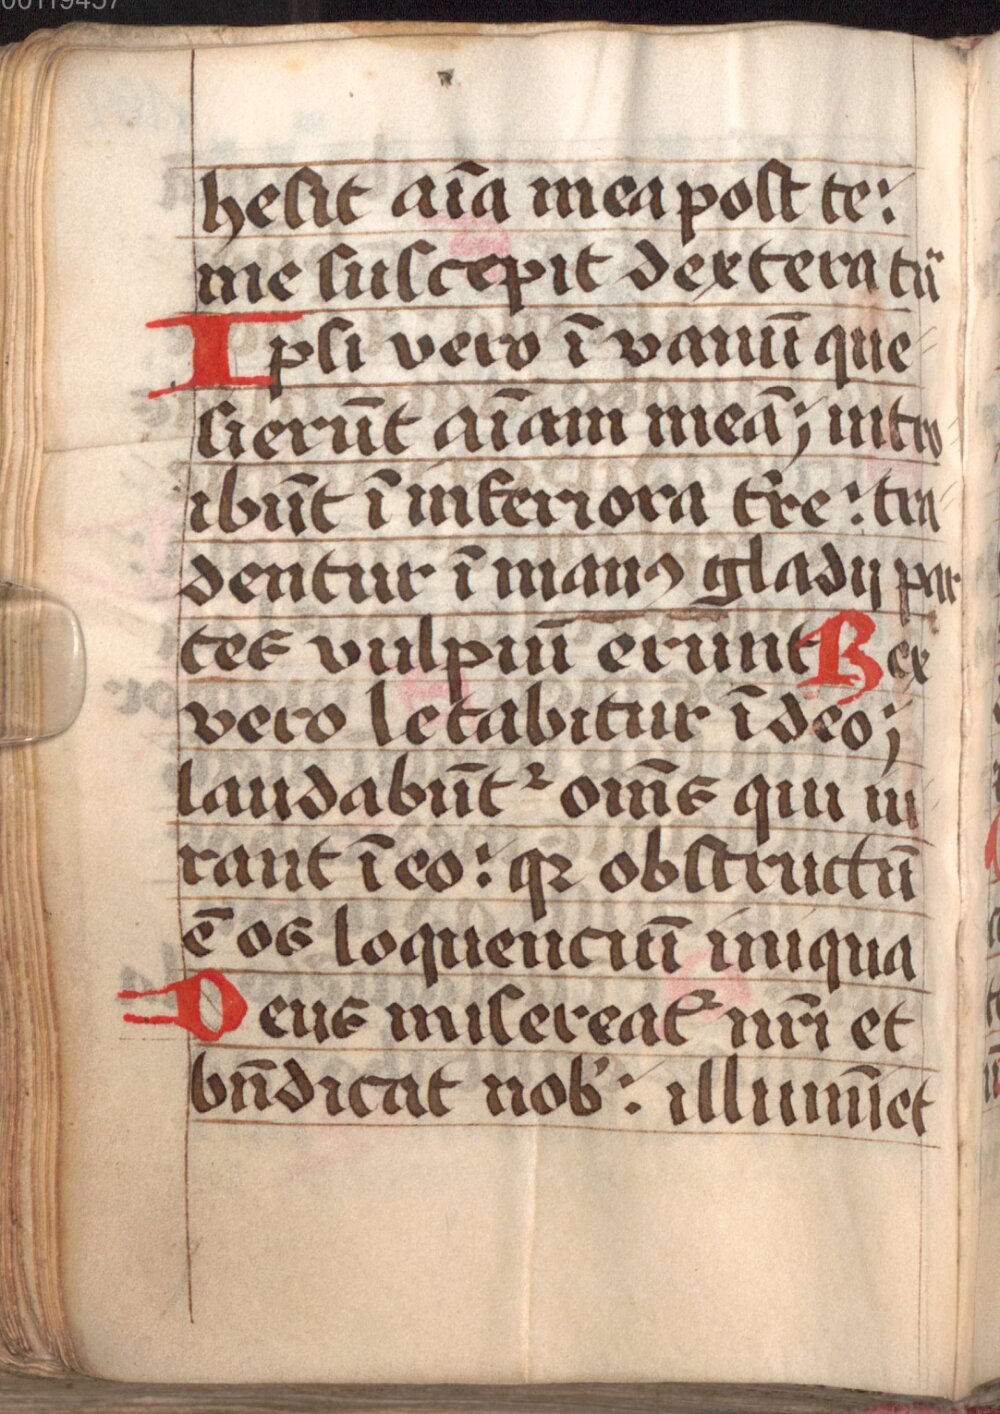 hesit aīa mea post te:
me suscepit dextera tū
Ipsi vero ī vanuī que
sierūt aīam meā; intro
ibūt ī inferiora tr̄e: tra
dentur ī manꝰ gladij par
tes vulpiū erunt Rex
vero letabitur ī deo;
laudabūtᷣ om̄s qui iu
rant ī eo: qꝛ obstructū
ē os loquenciū iniqua
Deus misereatᷣ nr̄i et
bn̄dicat nob̾: illumīet